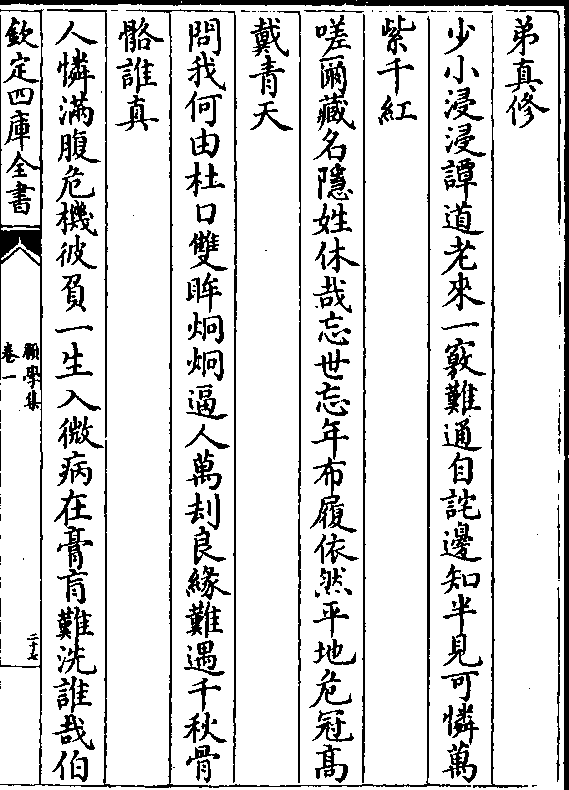 弟真修
少小浸浸譚道老來一竅難通自詫邊知半見可憐萬
紫千紅
嗟爾藏名隱姓休哉忘世忘年布履依然平地危冠高
戴青天
問我何由杜口雙眸炯炯逼人萬刦良緣難遇千秋骨
骼誰真
人憐滿腹危機彼負一生入微病在膏肓難洗誰哉伯
欽定四庫全書
願學集
卷一
二十七